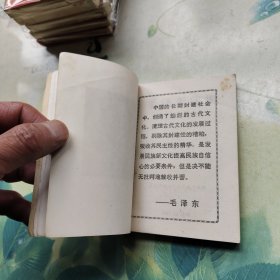 中国的长期封建社会
中，创造了灿烂的古代文
化。清理古代文化的发展过
程，剔除其封建性的糟粕，
吸收其民主性的精华，是发
展民族新文化提高民族自信
心的必要条件；但是决不能
无批判地兼收并蓄。
——毛泽东